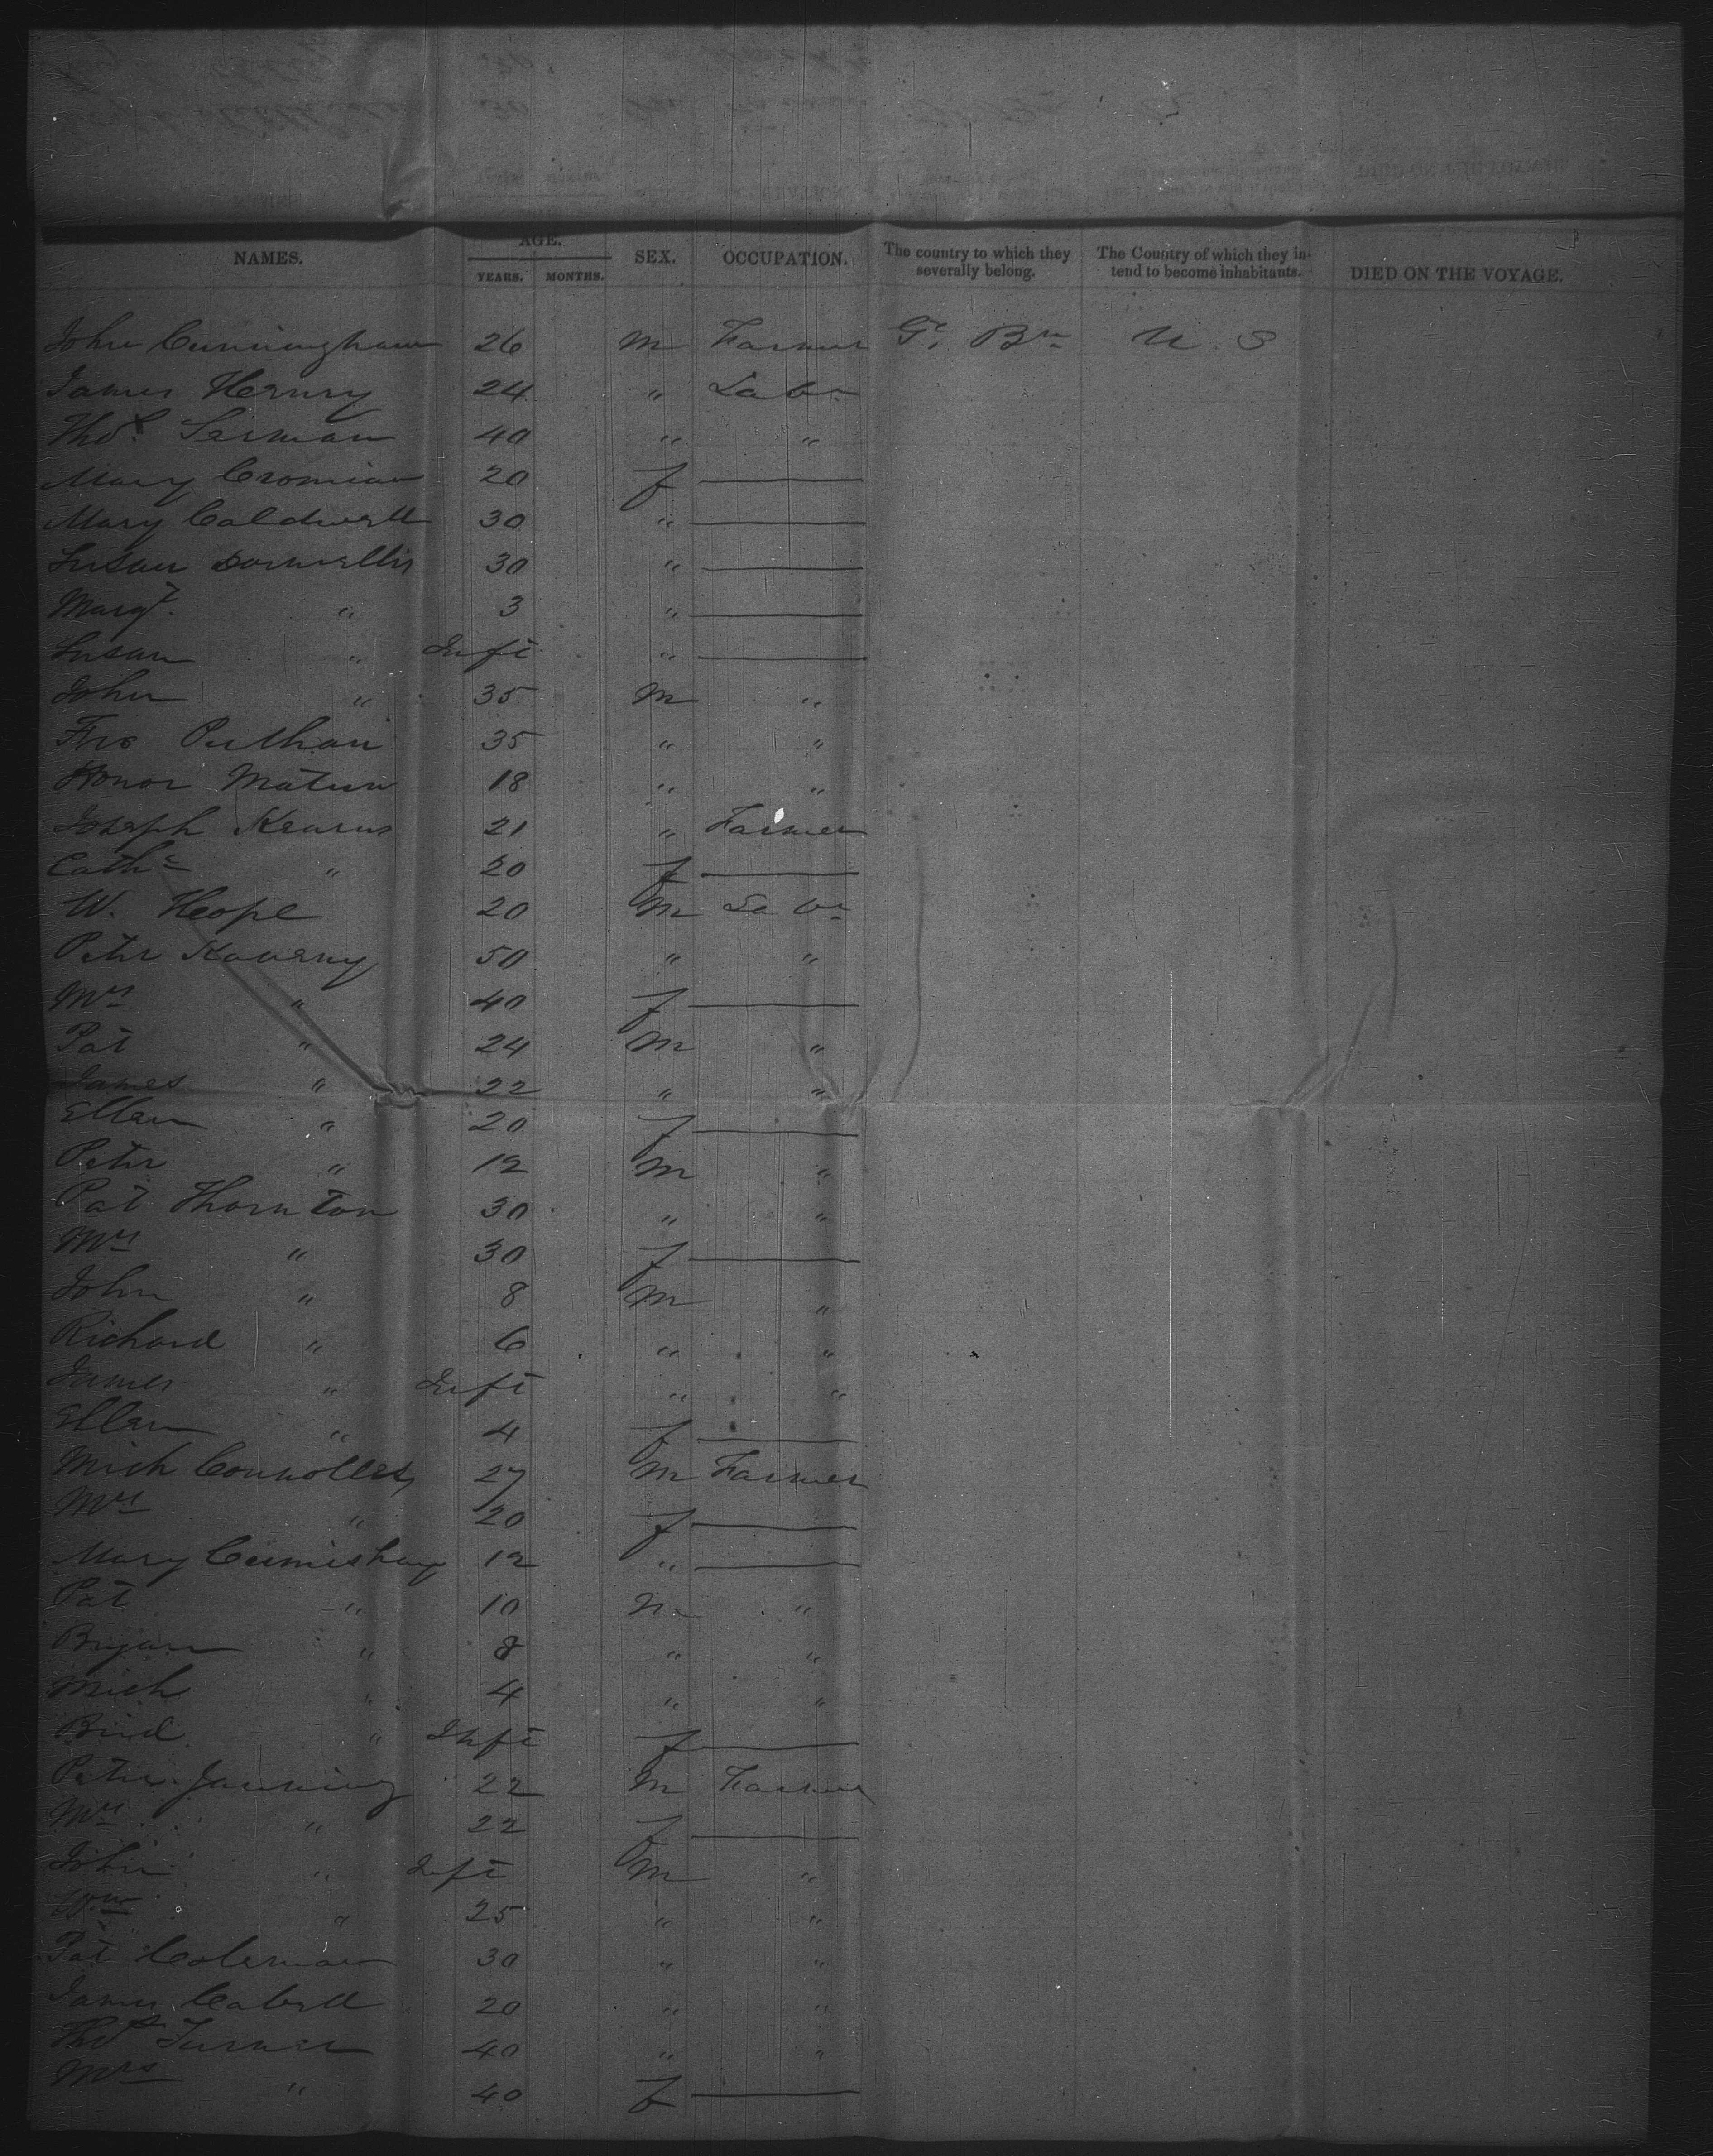 NAMES. AGE. YEARS. MONTHS. SEX. OCCUPATION. The country to which they severally belong. The Country of which they intend to become inhabitants. DIED ON THE VOYAGE.
John Cunningham 26 M Farmer Gt. Brn U. S
James Henry 24 " Labr
Thos. 40 " "
Mary Cronian 20 f —
Mary Caldwell 30 " —
Susan 30 " —
Margt. " 3 " —
Susan " Inft " —
John " 35 M "
35 " "
Honor 18 " "
Joseph Kearns 21 " Farmer
Cathe " 20 f —
W. Hope 20 M Labr
Peter 50 " "
Mrs " 40 f —
Pat " 24 M "
James " 22 " "
Ellen " 20 f —
Peter " 12 M "
Pat Thornton 30 " "
Mrs " 30 f —
John " 8 M "
Richard " 6 " "
James " Inft " "
Ellen " 4 f —
Mich Connolley 27 M Farmer
Mrs " 20 f —
Mary 12 " —
Pat " 10 M "
Bryan " 8 " "
Mich " 4 " "
Brid " Inft f —
Peter Janning 22 M Farmer
Mrs " 22 f —
John " Inft M "
Wm " 25 " "
Pat Coleman 30 " "
James 20 " "
Thos Turner 40 " "
Mrs " 40 f —